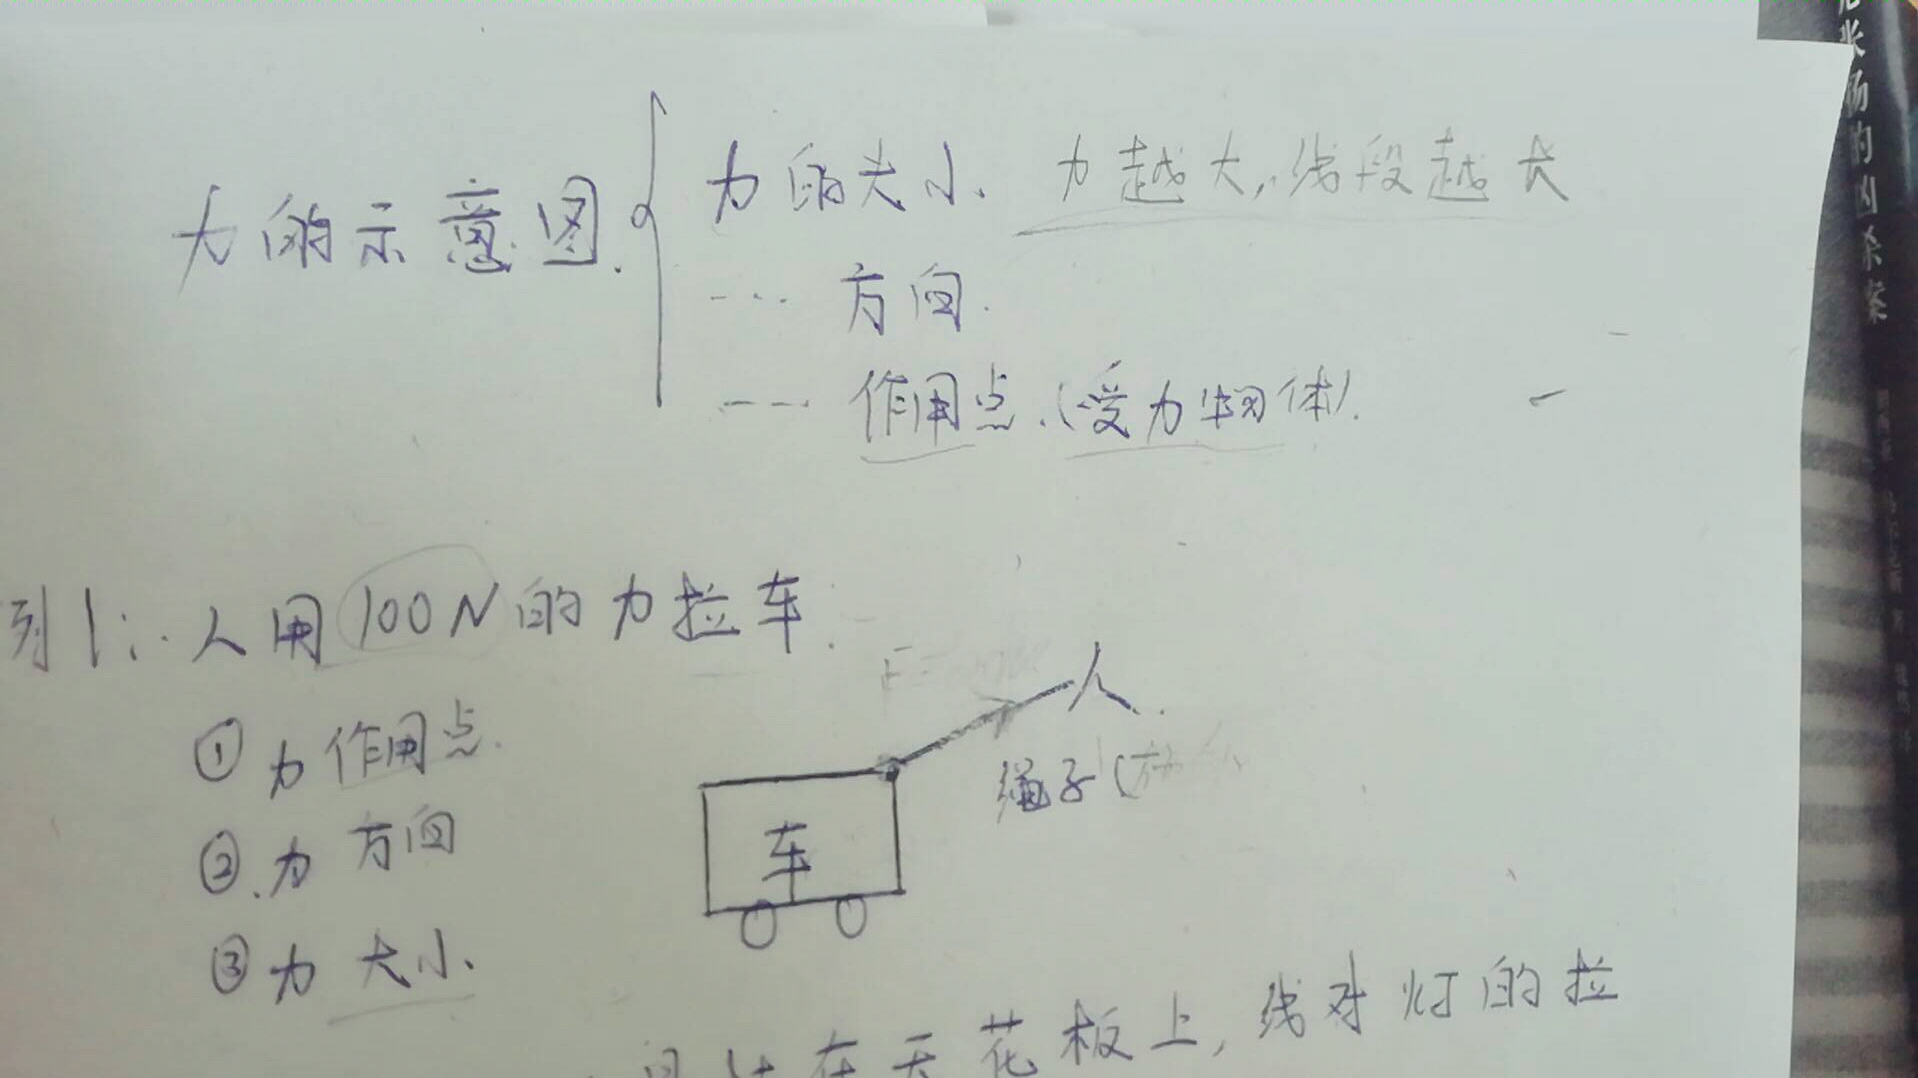 力的示意图.
力的大小. 力越大,线段越长
--- 方向.
--- 作用点.(受力物体).
例1: 人用100N的力拉车.
①力作用点.
②.力 方向
③力 大小.
人.
绳子(
车
在天花板上,线对灯的拉
张扬的凶杀案